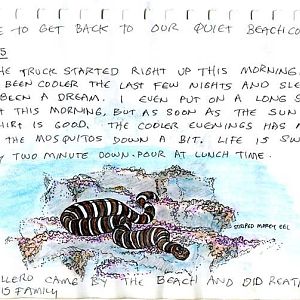 E TO GET BACK TO OUR QUIET BEACH CO
S
HE TRUCK STARTED RIGHT UP THIS MORNING.
BEEN COOLER THE LAST FEW NIGHTS AND SLE
BEEN A DREAM. I EVEN PUT ON A LONG S
T THIS MORNING, BUT AS SOON AS THE SUN
HIRT IS GOOD. THE COOLER EVENINGS HAS A
THE MOSQUITOS DOWN A BIT. LIFE IS SW
Y TWO MINUTE DOWN-POUR AT LUNCH TIME.
STRIPED MORAY EEL
LLERO CAME BY THE BEACH AND DID REAT
IS FAMILY